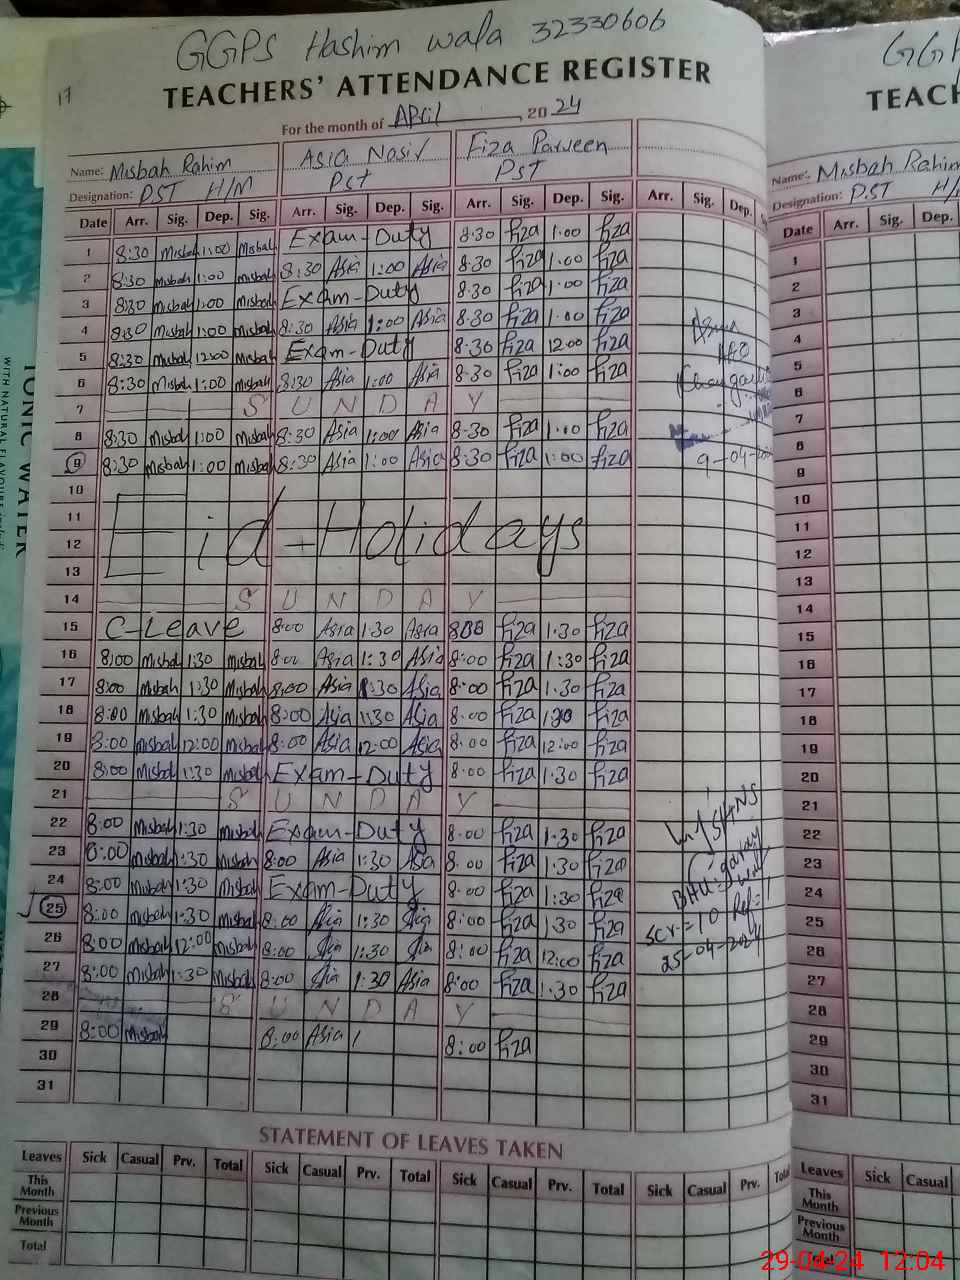 GGPS Hashim wala 32330606
17
TEACHERS' ATTENDANCE REGISTER
For the month of April 2024
Name: Misbah Rahim Asia Nasir Fiza Parveen
Designation: PST H/M PST PST
Date Arr. Sig. Dep. Sig. Arr. Sig. Dep. Sig. Arr. Sig. Dep. Sig. Arr. Sig. Dep.
1 8:30 Misbah 1:00 Misbah Exam-Duty 8:30 fiza 1:00 fiza
2 8:30 Misbah 1:00 Misbah 8:30 Asia 1:00 Asia 8:30 fiza 1:00 fiza
3 8:30 Misbah 1:00 Misbah Exam-Duty 8:30 fiza 1:00 fiza
4 8:30 Misbah 1:00 Misbah 8:30 Asia 1:00 Asia 8:30 fiza 1:00 fiza
5 8:30 Misbah 12:00 Misbah Exam-Duty 8:30 fiza 12:00 fiza
6 8:30 Misbah 1:00 Misbah 8:30 Asia 1:00 Asia 8:30 fiza 1:00 fiza
7 S U N D A Y
8 8:30 Misbah 1:00 Misbah 8:30 Asia 1:00 Asia 8:30 fiza 1:00 fiza
9 8:30 Misbah 1:00 Misbah 8:30 Asia 1:00 Asia 8:30 fiza 1:00 fiza
AEO
9-04-
10
11
12 Eid-Holidays
13
14 S U N D A Y
15 C-Leave 8:00 Asia 1:30 Asia 8:00 fiza 1:30 fiza
16 8:00 Misbah 1:30 Misbah 8:00 Asia 1:30 Asia 8:00 fiza 1:30 fiza
17 8:00 Misbah 1:30 Misbah 8:00 Asia 1:30 Asia 8:00 fiza 1:30 fiza
18 8:00 Misbah 1:30 Misbah 8:00 Asia 1:30 Asia 8:00 fiza 1:30 fiza
19 8:00 Misbah 12:00 Misbah 8:00 Asia 12:00 Asia 8:00 fiza 12:00 fiza
20 8:00 Misbah 1:30 Misbah Exam-Duty 8:00 fiza 1:30 fiza
21 S U N D A Y
22 8:00 Misbah 1:30 Misbah Exam-Duty 8:00 fiza 1:30 fiza
23 8:00 Misbah 1:30 Misbah 8:00 Asia 1:30 Asia 8:00 fiza 1:30 fiza
24 8:00 Misbah 1:30 Misbah Exam-Duty 8:00 fiza 1:30 fiza
25 8:00 Misbah 1:30 Misbah 8:00 Asia 1:30 Asia 8:00 fiza 1:30 fiza
26 8:00 Misbah 12:00 Misbah 8:00 Asia 1:30 Asia 8:00 fiza 12:00 fiza
27 8:00 Misbah 1:30 Misbah 8:00 Asia 1:30 Asia 8:00 fiza 1:30 fiza
SH&NS
BHU
Scr=10 Ref=1
25-04-2024
28 S U N D A Y
29 8:00 Misbah 8:00 Asia 1 8:00 fiza
30
31
STATEMENT OF LEAVES TAKEN
Leaves Sick Casual Prv. Total Sick Casual Prv. Total Sick Casual Prv. Total Sick Casual Prv. Total
This Month
Previous Month
Total
TEACH
Name: Misbah Rahim
Designation: PST H/
Date Arr. Sig. Dep.
1
2
3
4
5
6
7
8
9
10
11
12
13
14
15
16
17
18
19
20
21
22
23
24
25
26
27
28
29
30
31
Leaves Sick Casual
This Month
Previous Month
TONIC WATER
29-04-24 12:04